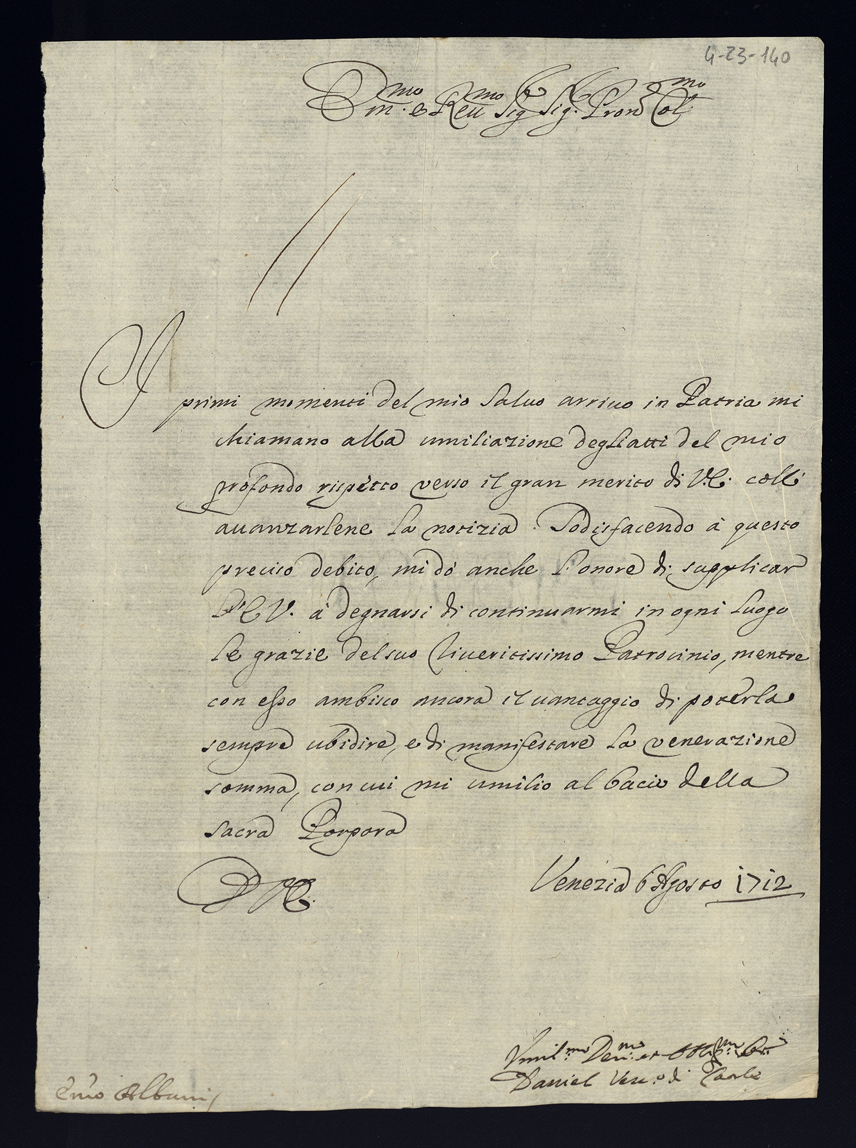 4-23-140
Em.mo e Reu.mo Sig. Sig. Pron Col.mo
I primi momenti del mio saluo arriuo in Patria mi
chiamano alla umiliazione degliatti del mio
profondo rispetto verso il gran merito di V.E. coll'
auanzarlene la notizia. Sodisfacendo à questo
preciso debito, mi dò anche l'onore di supplicar
l'E.V. à degnarsi di continuarmi in ogni luogo
le grazie del suo riueritissimo Patrocinio, mentre
con esso ambisco ancora il uantaggio di poterla
sempre ubidire, e di manifestare la venerazione
somma, con cui mi umilio al bacio della
sacra Porpora
D.V.E.
Venezia 6 Agosto 1712
Vmil.mo Deu.mo et Obl.mo
Daniel Vesc.o di Caorle
Em̃o Albani